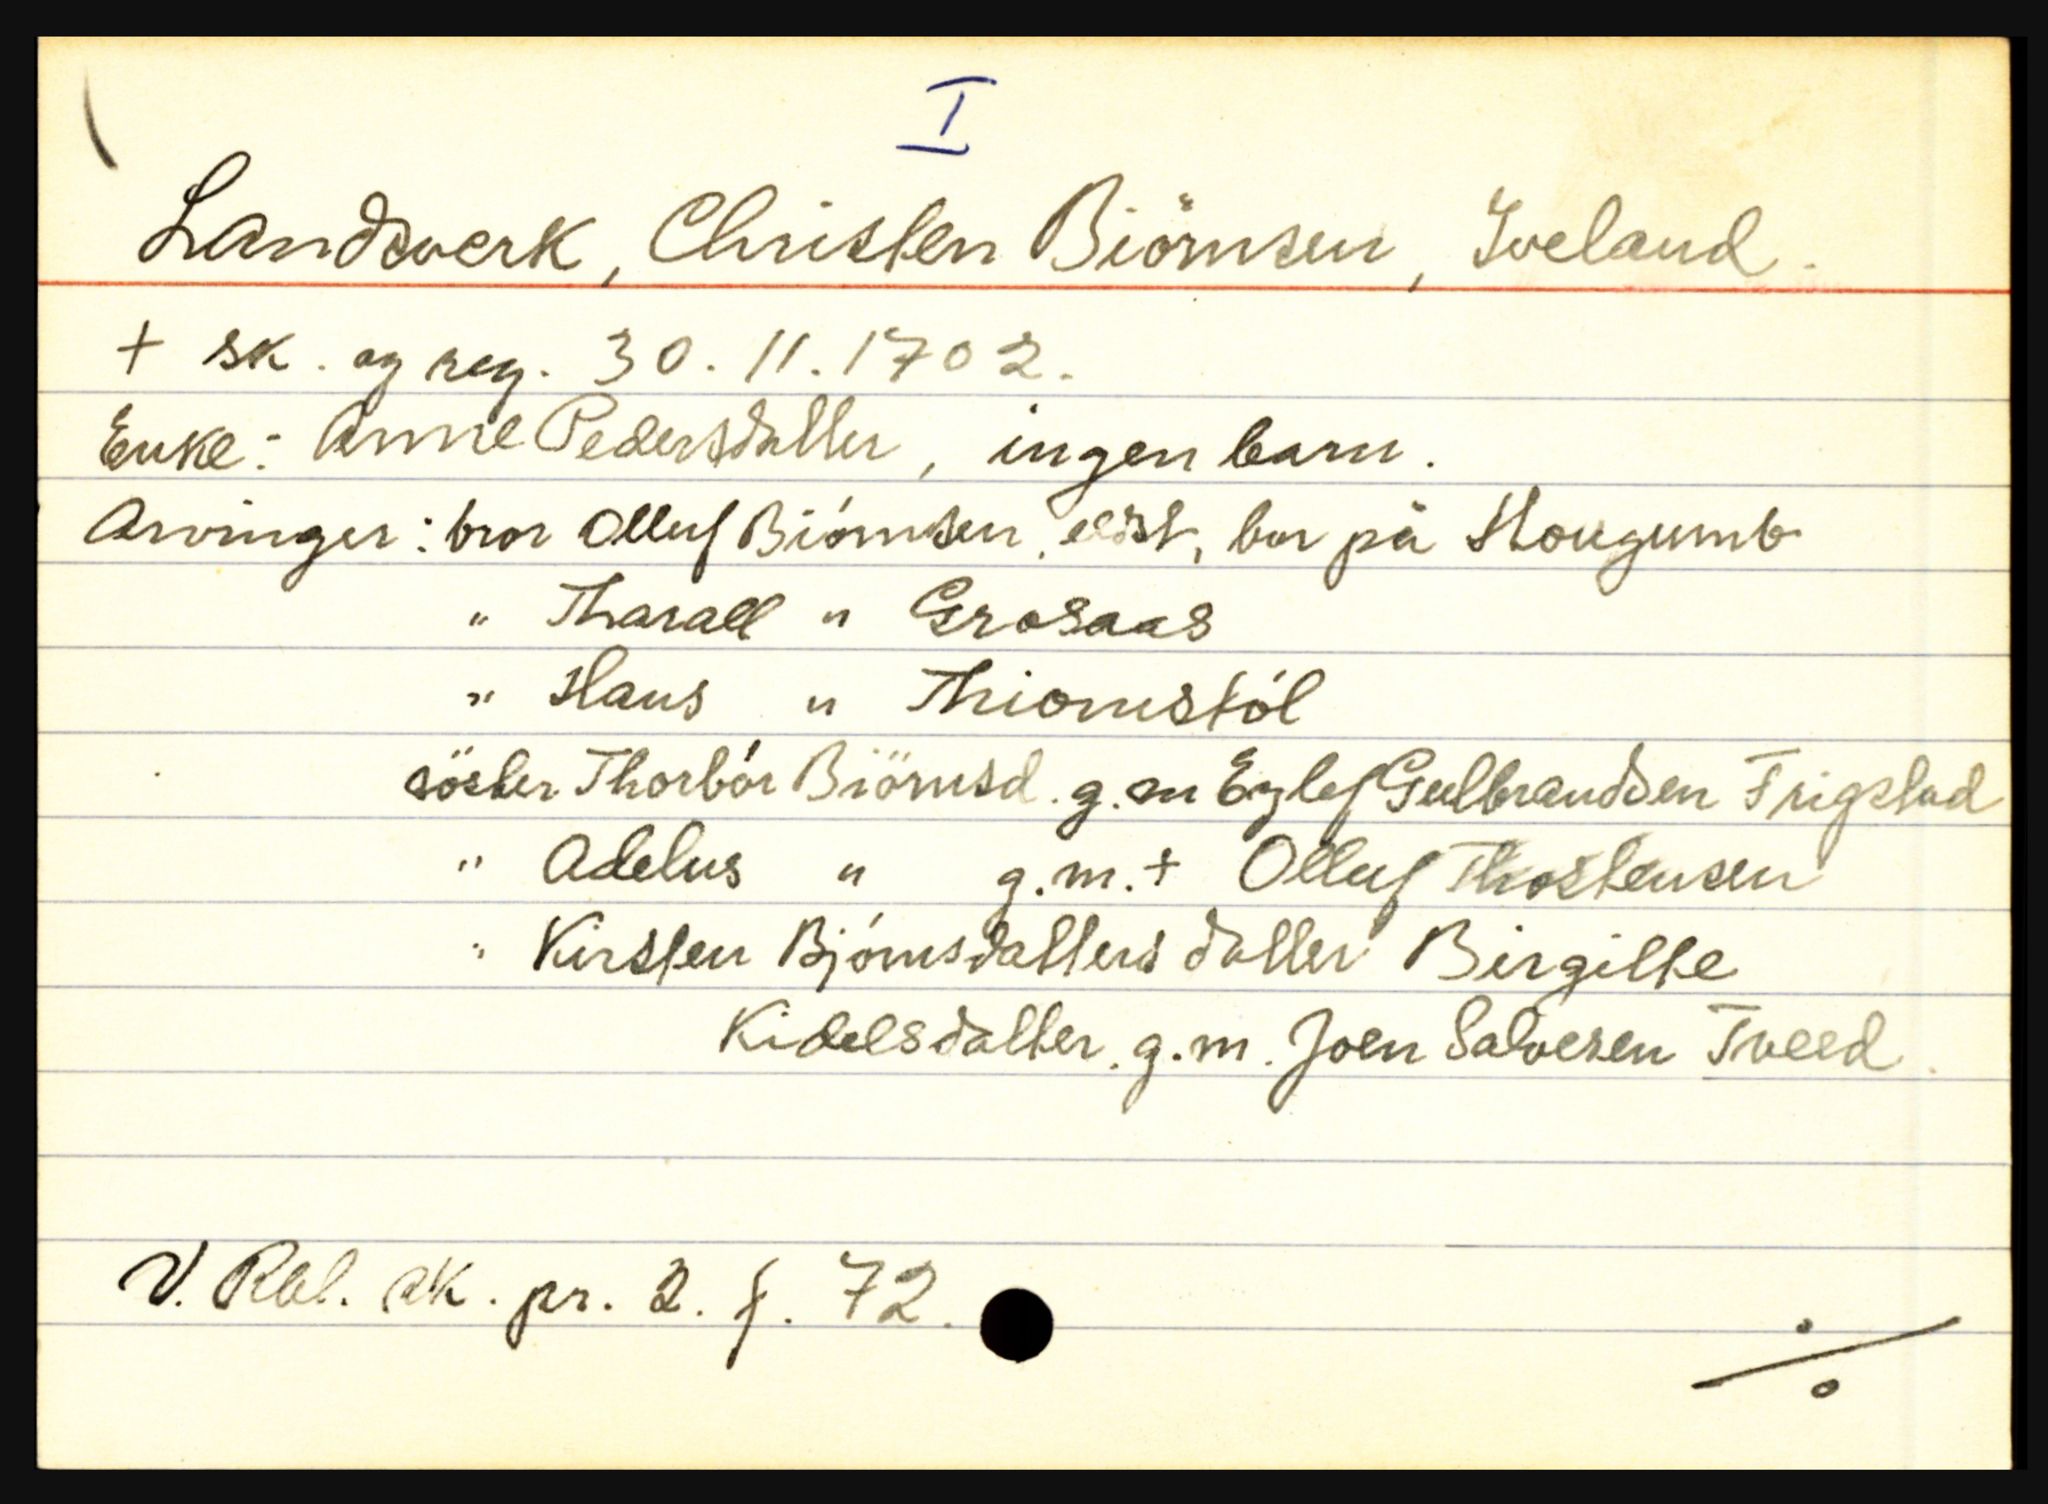 I
Landsverk, Christen Biörnsen, Iveland.
+ sk. og reg. 30.11.1702.
Enke: Anne Pedersdatter, ingen barn.
Arvinger: bror Olluf Biörnsen, eldst, bor på Hougumb
" Tharall " Grosaas
" Hans " Thiomstöl
söster Thorbör Biörnsd. g.m Eylef Gulbrandsen Frigstad
" Adelus " g.m.+ Olluf Thostensen
" Kirsten Bjórnsdatters datter Birgitte
Kidelsdatter, g.m. Joen Salvesen Tveed.
V. Rbl. sk. pr. 2. f. 72.